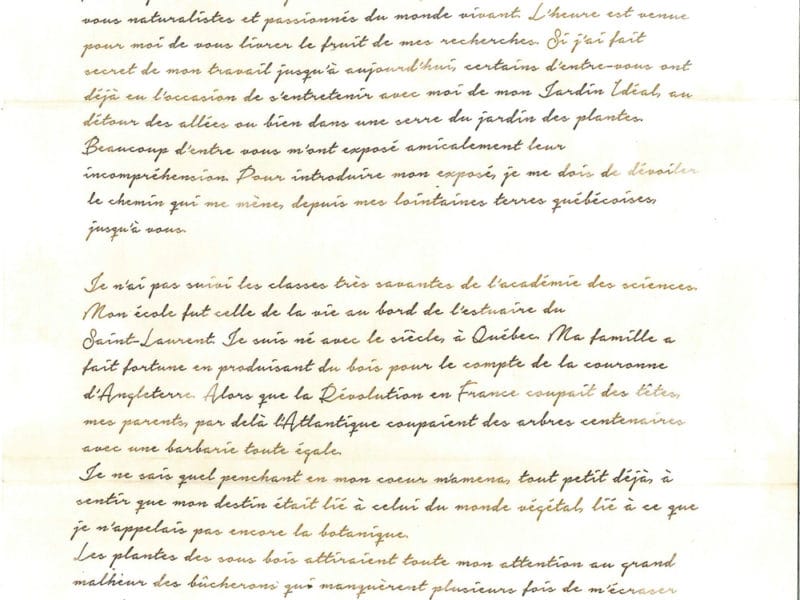 vous naturalistes et passionnés du monde vivant. L'heure est venue
pour moi de vous livrer le fruit de mes recherches. Si j'ai fait
secret de mon travail jusqu'à aujourd'hui, certains d'entre-vous ont
déjà eu l'occasion de s'entretenir avec moi de mon Jardin Idéal, au
détour des allées ou bien dans une serre du jardin des plantes.
Beaucoup d'entre vous m'ont exposé amicalement leur
incompréhension. Pour introduire mon exposé, je me dois de dévoiler
le chemin qui me mène, depuis mes lointaines terres québécoises,
jusqu'à vous.
Je n'ai pas suivi les classes très savantes de l'académie des sciences.
Mon école fut celle de la vie au bord de l'estuaire du
Saint-Laurent. Je suis né avec le siècle, à Québec. Ma famille a
fait fortune en produisant du bois pour le compte de la couronne
d'Angleterre. Alors que la Révolution en France coupait des têtes,
mes parents, par delà l'Atlantique coupaient des arbres centenaires
avec une barbarie toute égale.
Je ne sais quel penchant en mon coeur m'amena, tout petit déjà, à
sentir que mon destin était lié à celui du monde végétal, lié à ce que
je n'appelais pas encore la botanique.
Les plantes des sous bois attiraient toute mon attention au grand
malheur des bûcherons qui manquèrent plusieurs fois de m'écraser